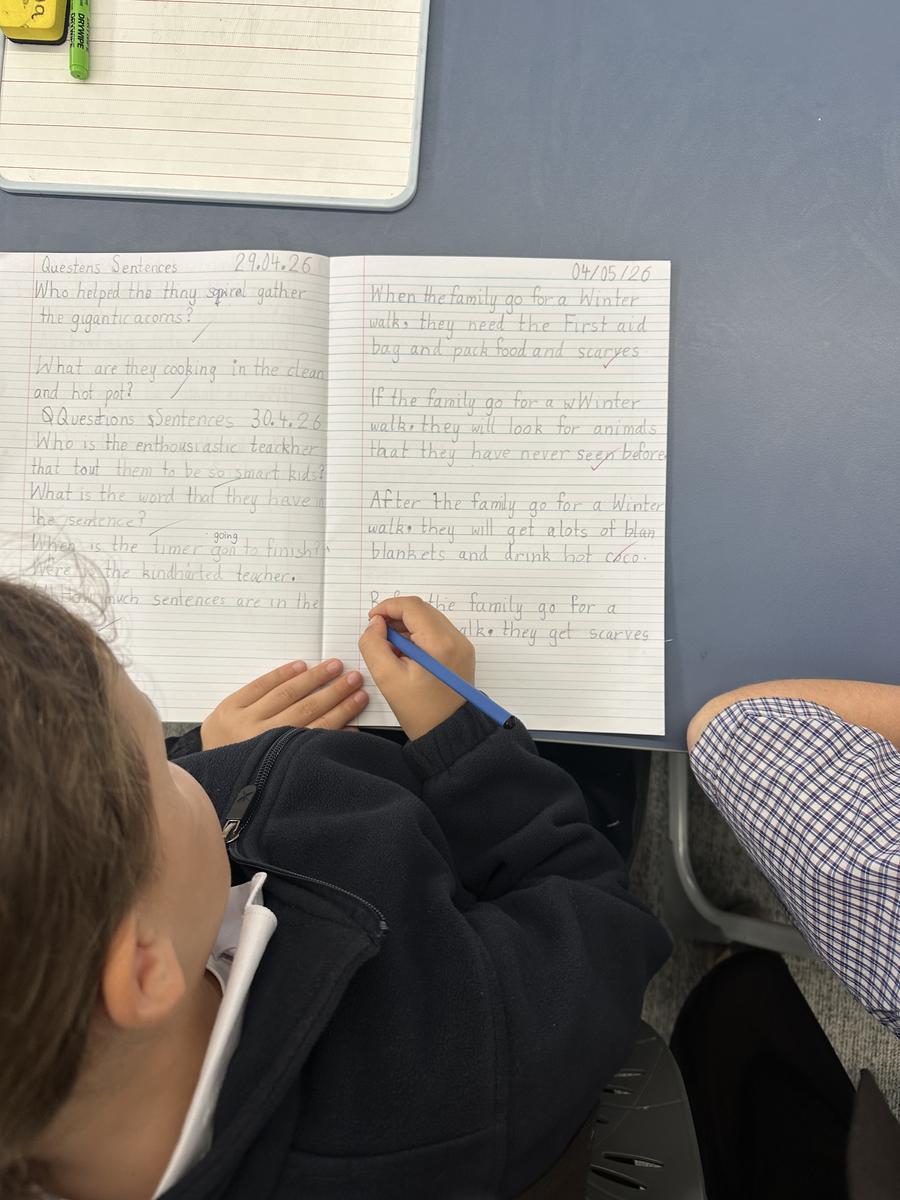 DRYWIPE
Questens Sentences 29.04.26
Who helped the thny sqiral gather
the gigantic acorns?
What are they cooking in the clean
and hot pot?
QQuestions sSentences 30.4.26
Who is the enthousiastic teackher
that tout them to be so smart kids?
What is the word that they have in
the sentence?
going
When is the timer gon to finish?
Were the kindharted teacher.
How much sentences are in the
04/05/26
When the family go for a Winter
walk, they need the First aid
bag and pack food and scarves
If the family go for a wWinter
walk, they will look for animals
that they have never seen before
After the family go for a Winter
walk, they will get alots of blan
blankets and drink hot coco.
the family go for a
they get scarves